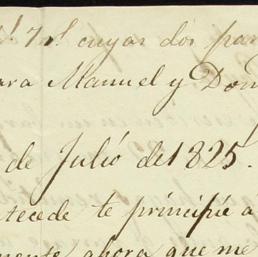 cuyas dos par
ara Manuel y Dom
de Julió de 1825.
tecede te principié a
mente, ahora que me